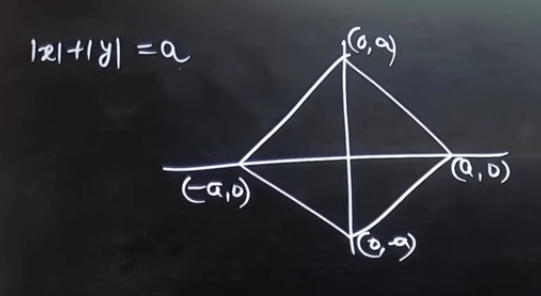 |x|+|y| = a
(0,a)
(-a,0)
(a,0)
(0,-a)